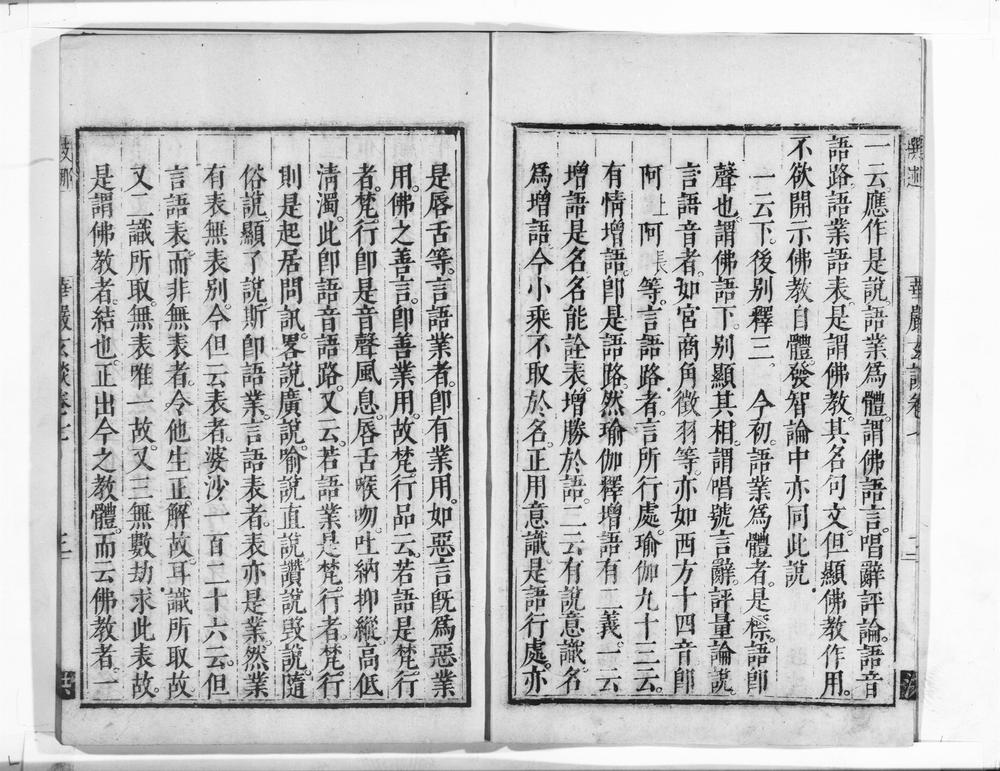 一云應作是說語業爲體謂佛語言唱辭評論語音
語路語業語表是謂佛教其名句文但顯佛教作用
不欲開示佛教自體發智論中亦同此說
一云下後別釋三 今初語業爲體者是標語卽
聲也謂佛語下別顯其相謂唱號言辭評量論說
言語音者如宮商角徵羽等亦如西方十四音卽
阿上阿長等言語路者言所行處瑜伽九十三云
有情增語卽是語路然瑜伽釋增語有二義一云
增語是名名能詮表增勝於語二云有說意識名
爲增語今小乘不取於名正用意識是語行處亦
是唇舌等言語業者卽有業用如惡言旣爲惡業
用佛之善言卽善業用故梵行品云若語是梵行
者梵行卽是音聲風息唇舌喉吻吐納抑縱高低
清濁此卽語音語路又云若語業是梵行者梵行
則是起居問訊畧說廣說喻說直說讚說毀說隨
俗說顯了說斯卽語業言語表者表亦是業然業
有表無表別今但云表者婆沙一百二十六云但
言語表而非無表者令他生正解故耳識所取故
又二識所取無表唯一故又三無數劫求此表故
是謂佛教者結也正出今之教體而云佛教者一
華嚴玄談卷七